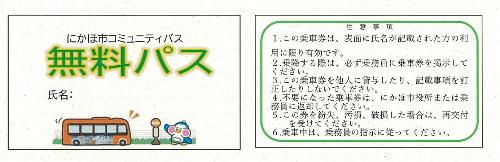 にかほ市コミュニティバス
無料パス
氏名:
注意事項
1.この乗車券は、表面に氏名が記載された方の利
用に限り有効です。
2.乗降する際は、必ず乗務員に乗車券を掲示して
ください。
3.この乗車券を他人に貸与したり、記載事項を訂
正したりしないでください。
4.不要になった乗車券は、にかほ市役所または乗務
員に返却してください。
5.この券を紛失、汚損、破損した場合は、再交付
を受けてください。
6.乗車中は、乗務員の指示に従ってください。